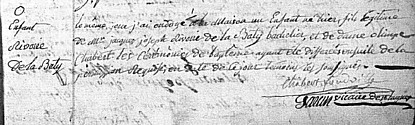 O
Enfant
Rivoire
De la Baty
le même jour j'ai ondoyé à la Maison un Enfant né hier fils légitime
de Mr jacques joseph Rivoire de la Baty bachelier et de dame olimpe
Chabert les Cérémonies du baptême ayant été différées ensuite de la
permission Requise, en acte de ce jour témoins les soussignés
Chabert
vicaire de